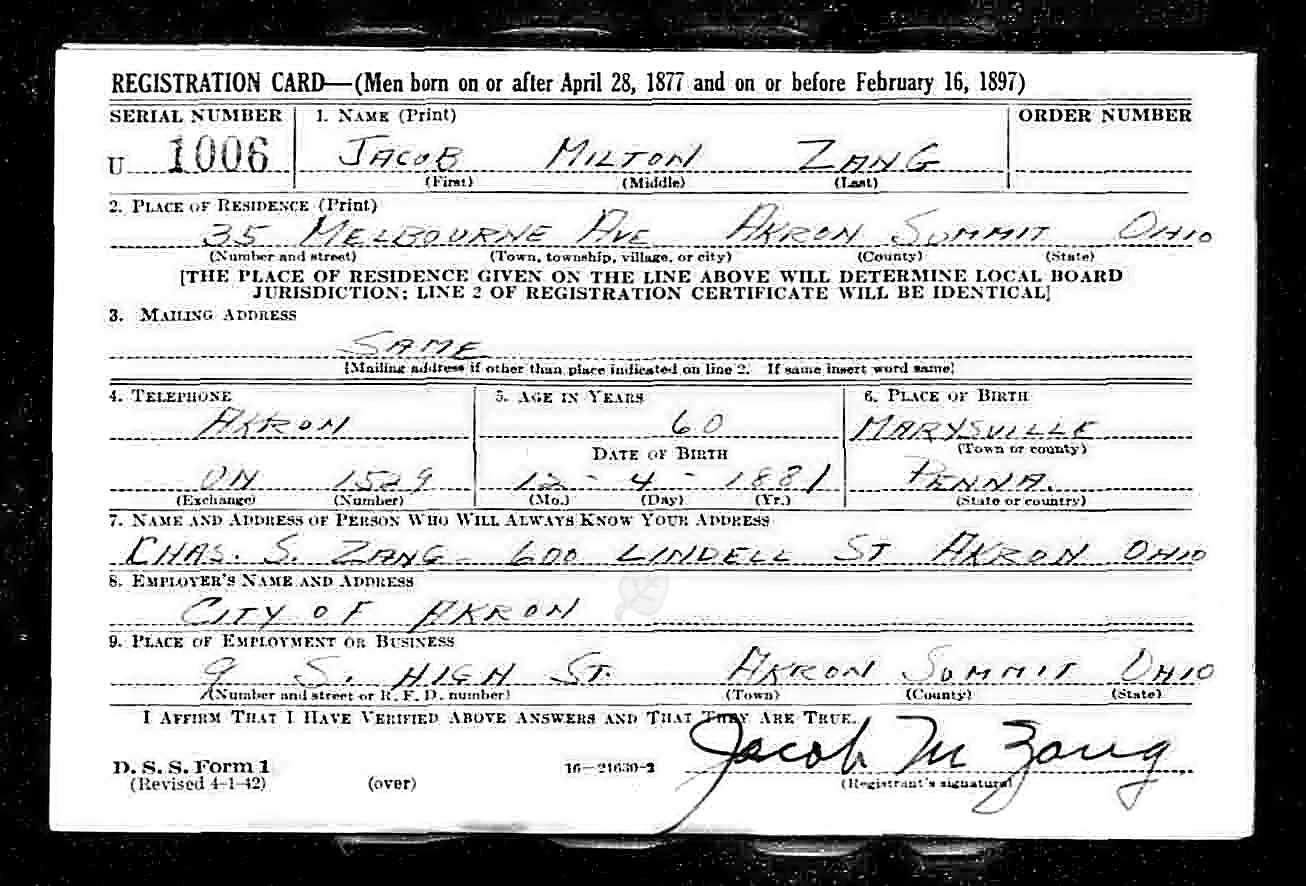 REGISTRATION CARD—(Men born on or after April 28, 1877 and on or before February 16, 1897)
SERIAL NUMBER 1. NAME (Print) ORDER NUMBER
U 1006 JACOB MILTON ZANG
(First) (Middle) (Last)
2. PLACE OF RESIDENCE (Print)
35 MELBOURNE AVE AKRON SUMMIT OHIO
(Number and street) (Town, township, village, or city) (County) (State)
[THE PLACE OF RESIDENCE GIVEN ON THE LINE ABOVE WILL DETERMINE LOCAL BOARD
JURISDICTION; LINE 2 OF REGISTRATION CERTIFICATE WILL BE IDENTICAL]
3. MAILING ADDRESS
SAME
[Mailing address if other than place indicated on line 2. If same insert word same]
4. TELEPHONE 5. AGE IN YEARS 6. PLACE OF BIRTH
AKRON 60 MARYSVILLE
DATE OF BIRTH (Town or county)
UN 1529 12 - 4 - 1881 PENNA.
(Exchange) (Number) (Mo.) (Day) (Yr.) (State or country)
7. NAME AND ADDRESS OF PERSON WHO WILL ALWAYS KNOW YOUR ADDRESS
CHAS. S. ZANG - 600 LINDELL ST AKRON OHIO
8. EMPLOYER'S NAME AND ADDRESS
CITY OF AKRON
9. PLACE OF EMPLOYMENT OR BUSINESS
9 S. HIGH ST. AKRON SUMMIT OHIO
(Number and street or R. F. D. number) (Town) (County) (State)
I AFFIRM THAT I HAVE VERIFIED ABOVE ANSWERS AND THAT THEY ARE TRUE.
Jacob M Zang
D. S. S. Form 1 16—21630-2
(Revised 4-1-42) (over) (Registrant's signature)